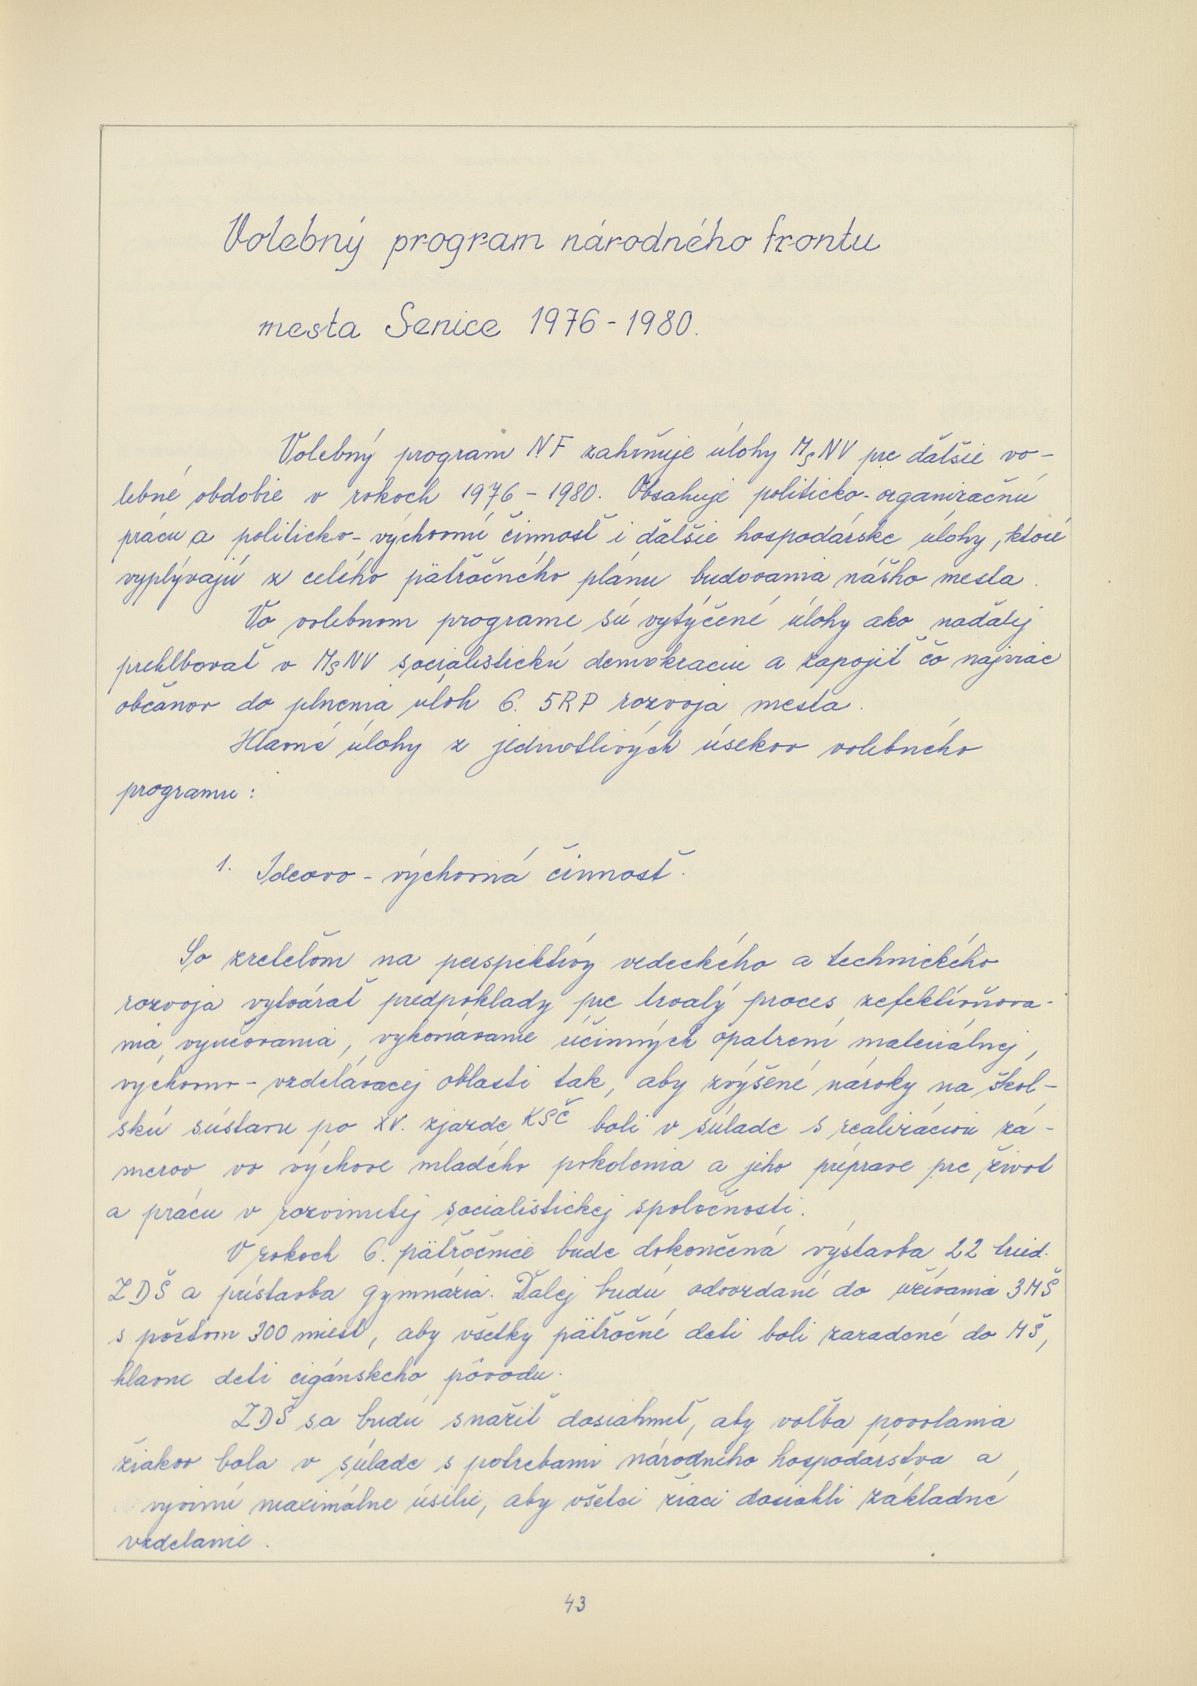 Volebný program národného frontu
mesta Senice 1976-1980.
Volebný program NF zahrňuje úlohy MsNV pre ďalšie vo-
lebné obdobie v rokoch 1976 - 1980. Obsahuje politicko-organizačnú
prácu a politicko-výchovnú činnosť i ďalšie hospodárske úlohy, ktoré
vyplývajú z celého päťročného plánu budovania nášho mesta.
Vo volebnom programe sú vytýčené úlohy ako naďalej
prehlbovať v MsNV socialistickú demokraciu a zapojiť čo najviac
občanov do plnenia úloh 6. 5RP rozvoja mesta.
Hlavné úlohy z jednotlivých úsekov volebného
programu:
1. Ideovo - výchovná činnosť.
So zreteľom na perspektívy vedeckého a technického
rozvoja vytvárať predpoklady pre trvalý proces zefektívňova-
nia vyučovania, vykonávanie účinných opatrení materiálnej,
výchovno - vzdelávacej oblasti tak, aby zvýšené nároky na škol-
skú sústavu po XV. zjazde KSČ boli v súlade s realizáciou zá-
merov vo výchove mladého pokolenia a jeho príprave pre život
a prácu v rozvinutej socialistickej spoločnosti.
V rokoch 6. päťročnice bude dokončená výstavba 22 tried.
ZDŠ a prístavba gymnázia. Ďalej budú odovzdané do užívania 3 MŠ
s počtom 300 miest, aby všetky päťročné deti boli zaradené do MŠ,
hlavne deti cigánskeho pôvodu.
ZDŠ sa budú snažiť dosiahnuť, aby voľba povolania
žiakov bola v súlade s potrebami národného hospodárstva a
vyvinú maximálne úsilie, aby všetci žiaci dosiahli základné
vzdelanie.
43